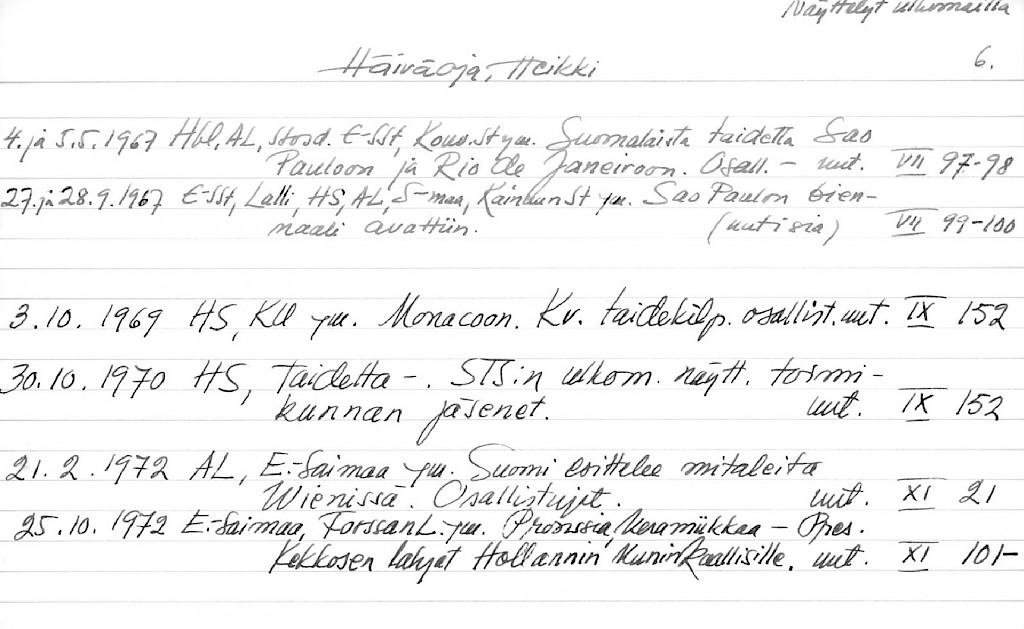 Näyttelyt ulkomailla
Häiväoja, Heikki 6.
4. ja 5.5.1967 Hbl, AL, Stosd. E-SSt, Kouv.St ym. Suomalaista taidetta Sao
Pauloon ja Rio de Janeiroon. Osall. - uut. VII 97-98
27. ja 28.9.1967 E-SSt, Lalli, HS, AL, S-maa, Kainuun St ym. Sao Paulon bien-
naali avattiin. (uutisia) VII 99-100
3.10.1969 HS, KU ym. Monacoon. Kv. taidekilp. osallist. uut. IX 152
30.10.1970 HS, Taidetta -. STS:n ulkom. näytt. toimi-
kunnan jäsenet. uut. IX 152
21.2.1972 AL, E.-Saimaa ym. Suomi esittelee mitaleita
Wienissä. Osallistujat. uut. XI 21
25.10.1972 E.-Saimaa, Forssan L. ym. Pronssia, keramiikkaa - Pres.
Kekkosen lahjat Hollannin kuninkaallisille. uut. XI 101-